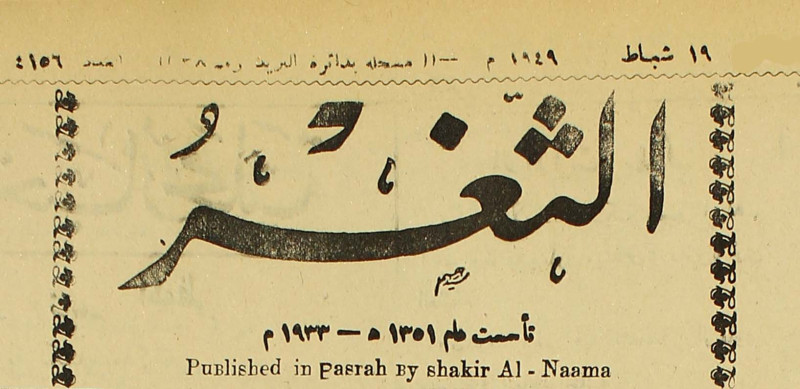 ١٩ شباط ١٩٤٩ م — مسجلة بدائرة البريد العدد ٤١٥٦
الثَّغْر
تأسست عام ١٣٥١ ه — ١٩٣٣ م
Published in Basrah By shakir Al - Naama